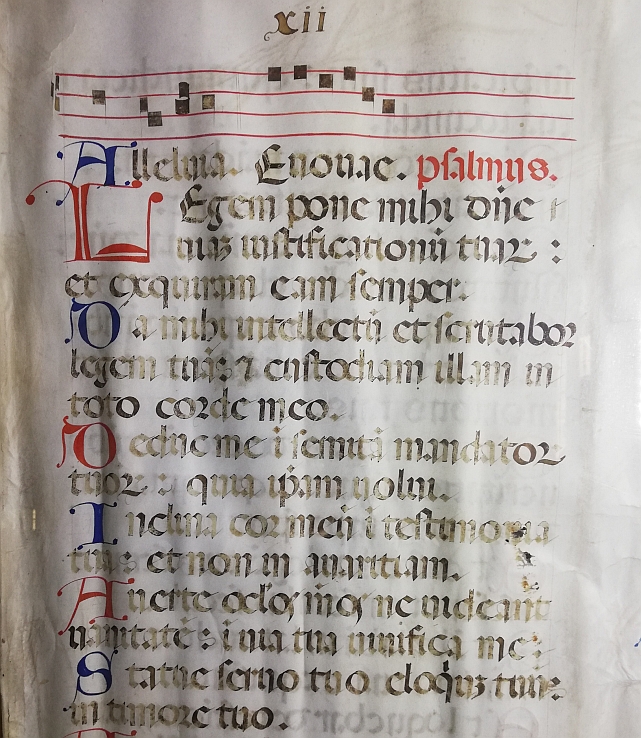 xii
Alleluia. Euouae. psalmus.
Legem pone mihi dñe
uiaʒ iustificationũ tuaꝝ :
et exquiram eam semper.
Da mihi intellectũ et scrutabor
legem tuã: ⁊ custodiam illam in
toto corde meo.
Deduc me ĩ semitã mandatoꝝ
tuoꝝ : quia ip̃am uolui.
Inclina cor meũ ĩ testimonia
tua: et non in auaritiam.
Auerte oclos meos ne uideant
uanitatẽ: ĩ uia tua uiuifica me:
Statue seruo tuo eloquiuʒ tuũ:
in timore tuo.